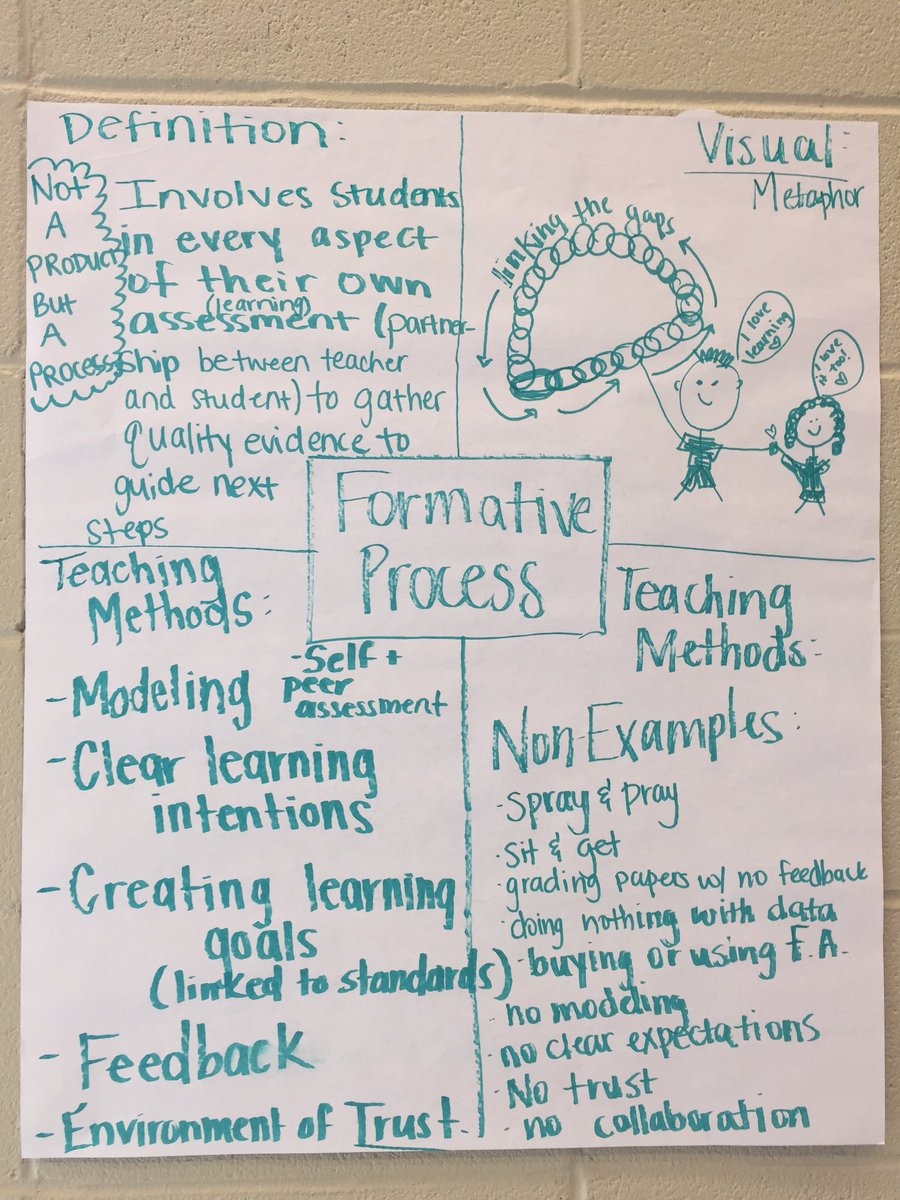 Definition:
Not
A
PRODUCT
But
A
PROCESS
Involves students
in every aspect
of their own
(learning)
assessment (partner-
ship between teacher
and student) to gather
quality evidence to
guide next
steps
Visual:
Metaphor
linking the gaps
I love
learning
I love
it too!
Formative
Process
Teaching
Methods:
- Modeling
- Self +
peer
assessment
- Clear learning
intentions
- Creating learning
goals
(linked to standards)
- Feedback
- Environment of Trust.
Teaching
Methods:
Non Examples:
· Spray & Pray
· Sit & get
· grading papers w/ no feedback
· doing nothing with data
· buying or using F.A.
· no modeling
· no clear expectations
· No trust
· no collaboration